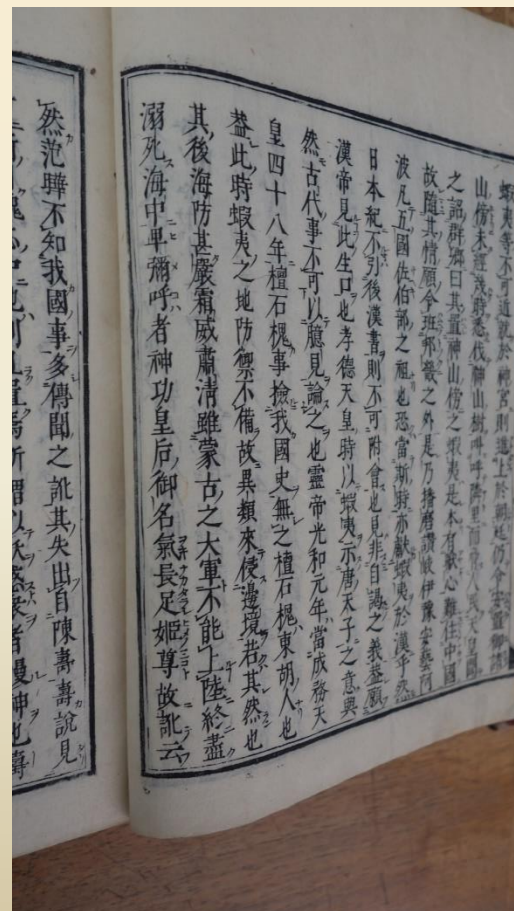 蝦夷等不可近就於神宮則進上於朝廷仍令安置御諸
山傍未經幾時悉伐神山樹叫呼隣里而脅人民天皇聞
之詔群卿曰其置神山傍之蝦夷是本有獸心難住中國
故隨其情願令班邦畿之外是乃播磨讃岐伊豫安藝阿
波凡五國佐伯部之祖也恐當斯時亦獻蝦夷於漢乎然
日本紀不引後漢書則不可附會也見非自謁之義蓋願
漢帝見此生口也孝德天皇時以蝦夷示唐天子之意與
然古代事不可以臆見論之也靈帝光和元年當成務天
皇四十八年檀石槐事撿我國史無之檀石槐東胡人也
蓋此時蝦夷之地防禦不備故異類來侵邊境若其然也
其後海防甚嚴霜威肅清雖蒙古之大軍不能上陸終盡
溺死海中卑彌呼者神功皇后御名氣長足姬尊故訛云
然范曄不知我國事多傳聞之訛其失出自陳壽壽說見
所謂以妖惑衆者慢神也壽